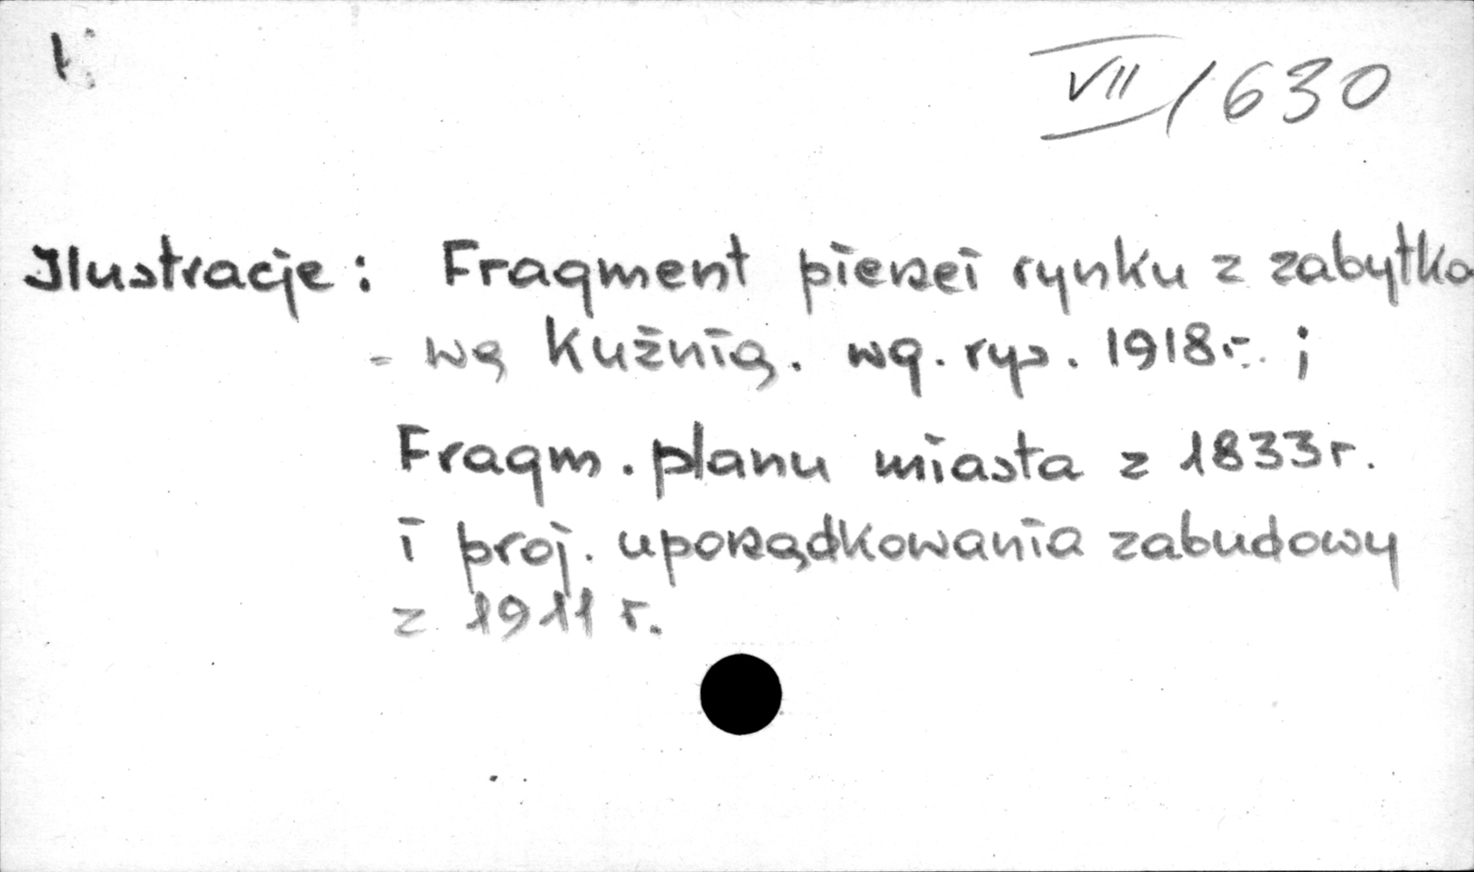 VII/630
Ilustracje: Fragment pierzei rynku z zabytko
- wą kuźnią. wg. rys. 1918 r. ;
Fragm. planu miasta z 1833 r.
i proj. uporządkowania zabudowy
z 1911 r.